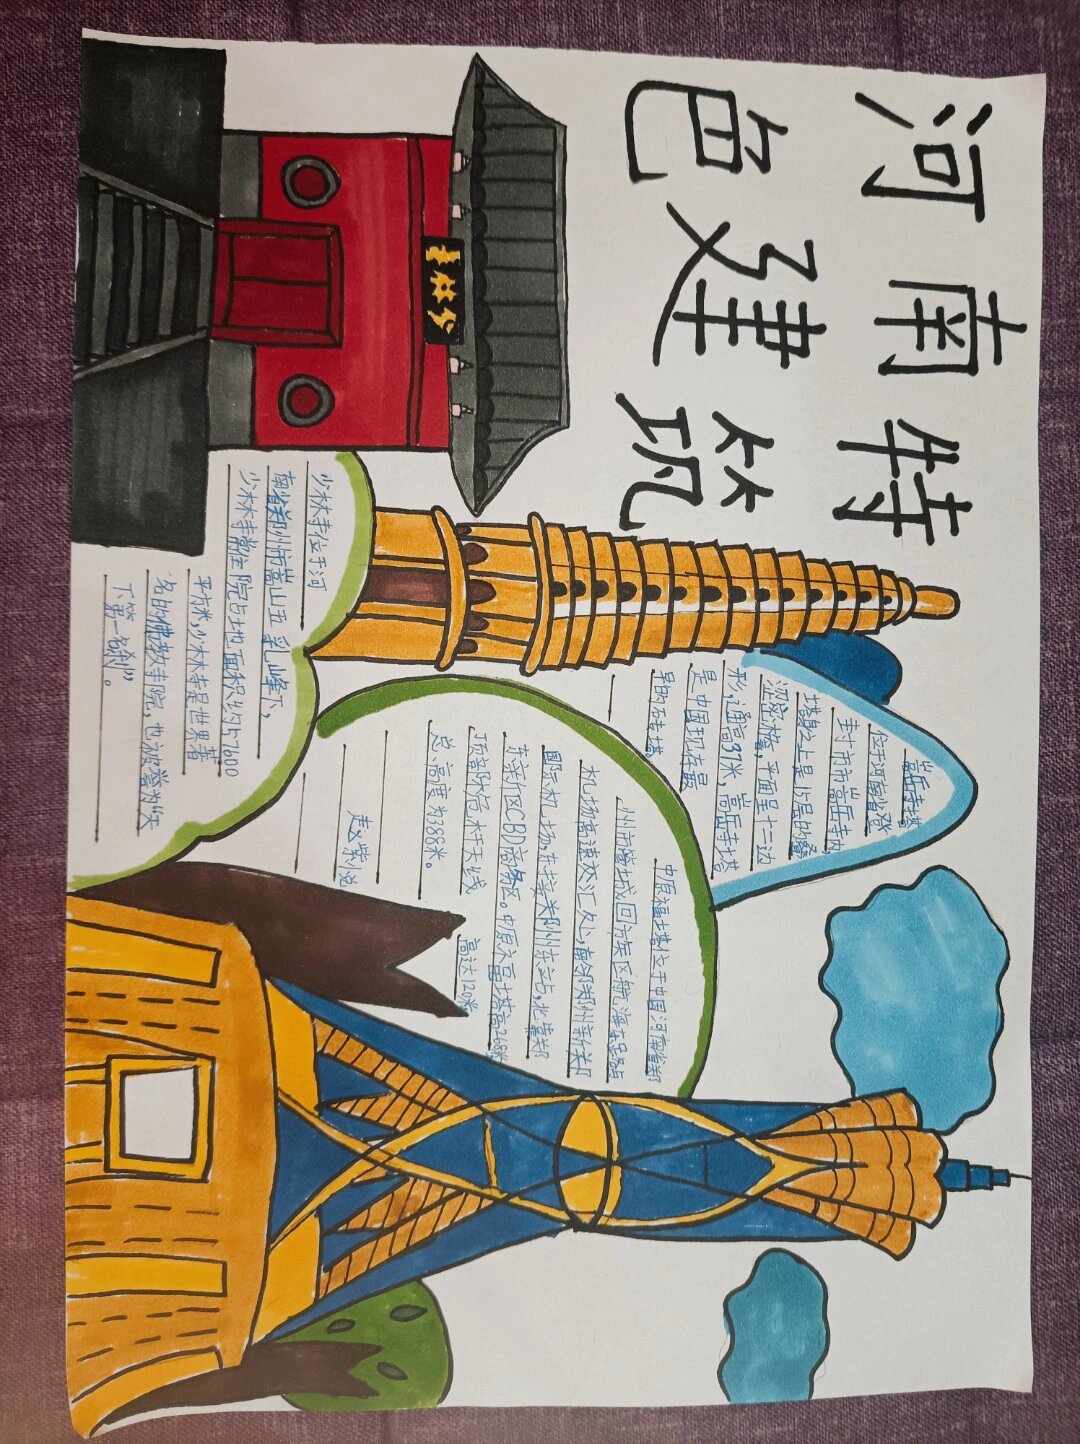 河南特
色建筑
少林寺
少林寺位于河
南省郑州市嵩山五乳峰下，
少林寺常住院占地面积约57600
平方米，少林寺是世界著
名的佛教寺院，也被誉为“天
下第一名刹”。
嵩岳寺塔
位于河南省登
封市嵩岳寺内，
塔身之上是15层的叠
涩密檐，平面呈十二边
形，通高37米，嵩岳寺塔
是中国现存最
早的砖塔。
中原福塔位于中国河南省郑
州市管城回族区航海东路与
机场高速交汇处，南邻郑州新郑
国际机场，东接郑州东站，北靠郑
东新区CBD商务区。中原福塔塔高268米
顶部桅杆天线 高达120米
总高度为388米。
赵紫悦